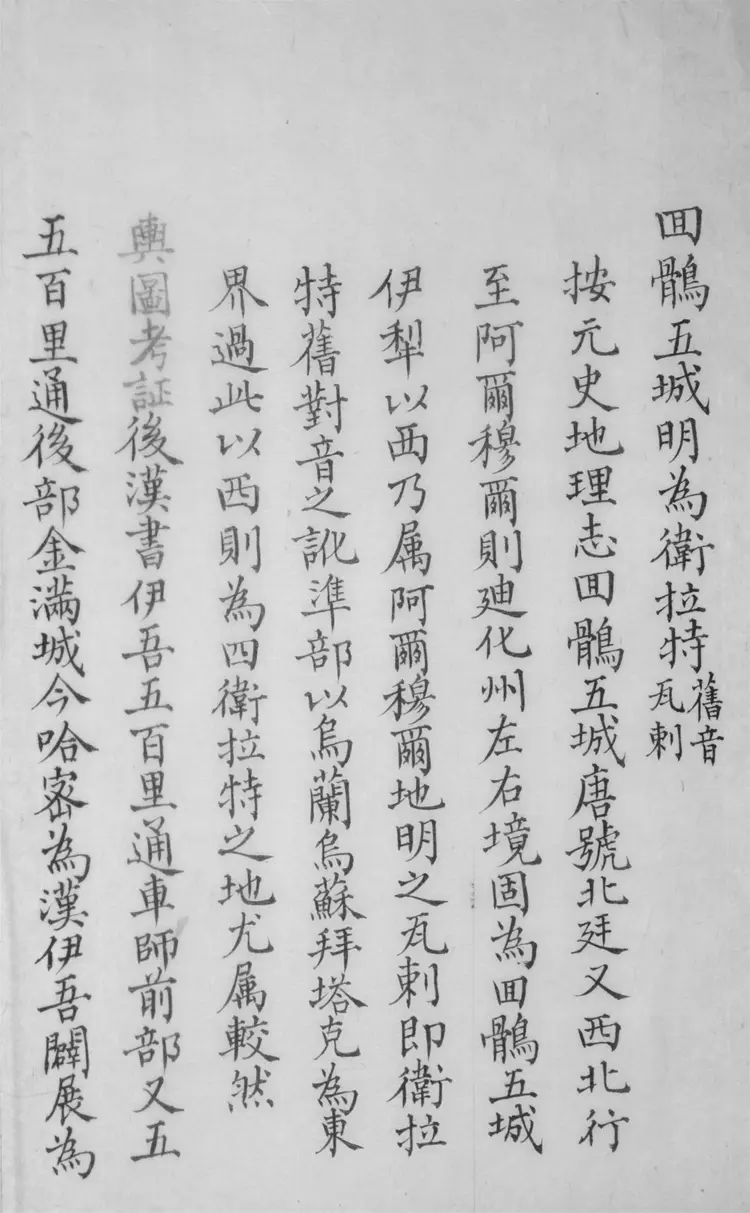 囬鶻五城明為衛拉特舊音瓦剌
按元史地理志囬鶻五城唐號北廷又西北行
至阿爾穆爾則廸化州左右境固為囬鶻五城
伊犁以西乃属阿爾穆爾地明之瓦剌即衛拉
特舊對音之訛準部以烏蘭烏蘇拜塔克為東
界過此以西則為四衛拉特之地尤属較然
輿圖考証後漢書伊吾五百里通車師前部又五
五百里通後部金滿城今哈宻為漢伊吾闢展為